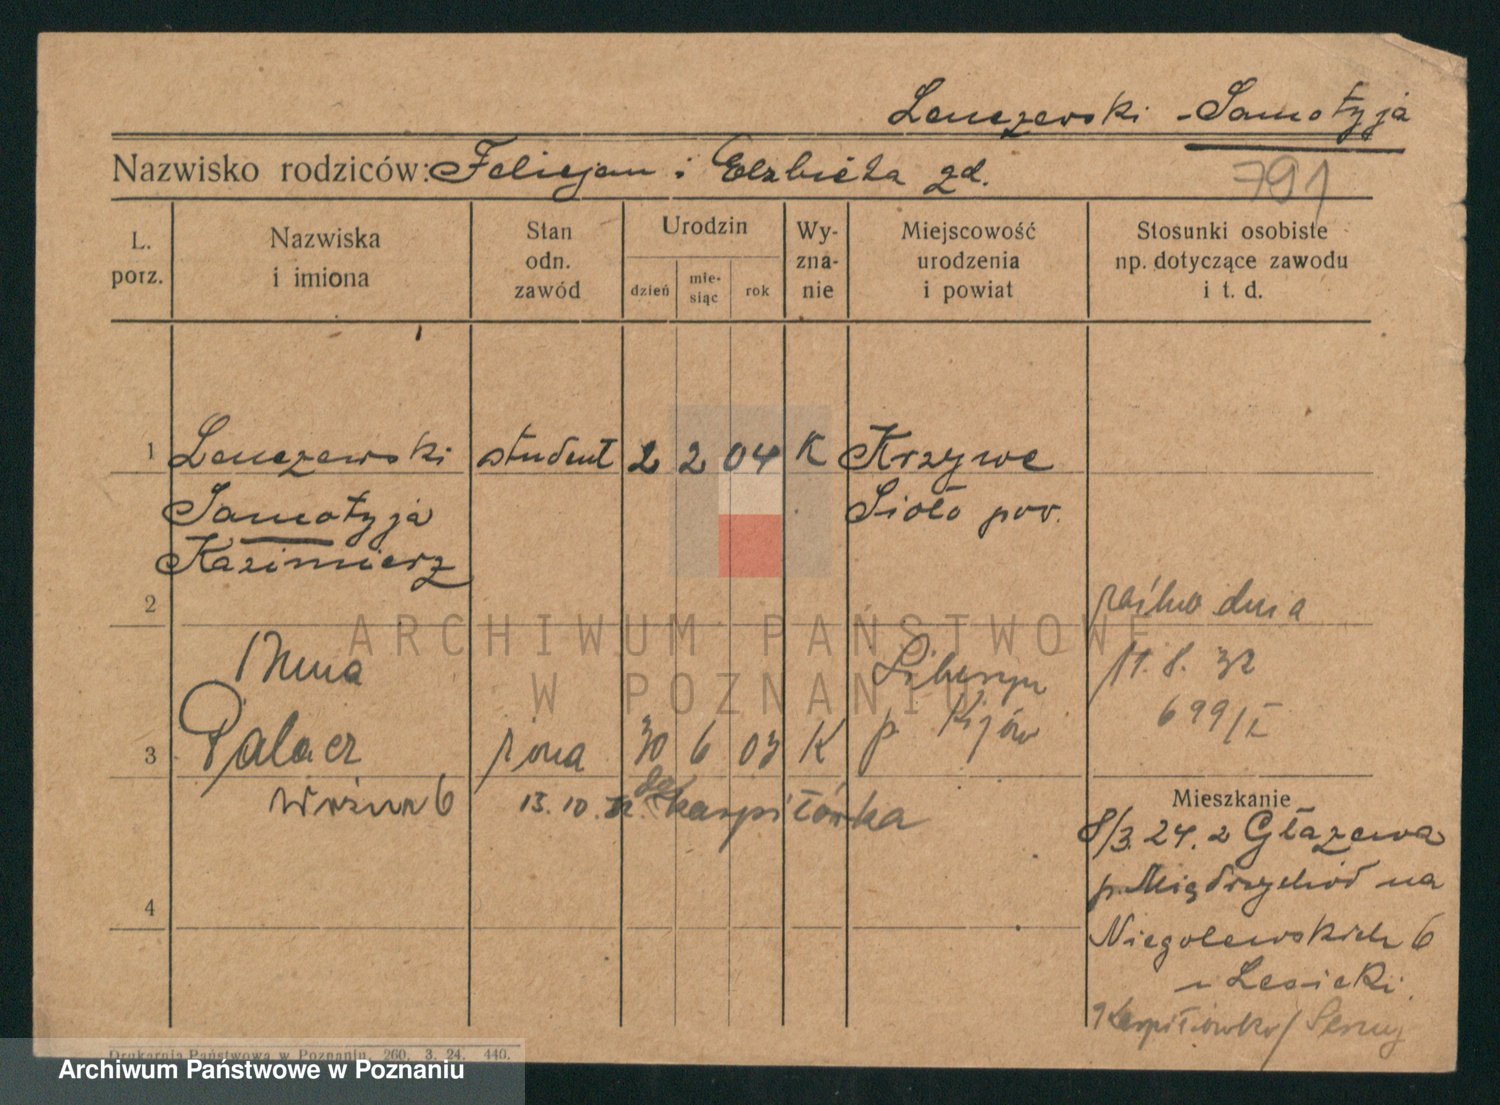 Lenczewski - Samotyja
Nazwisko rodziców: Felicjan i Elżbieta zd.
791
L. porz.
Nazwiska i imiona
Stan odn. zawód
Urodzin
dzień
mie-siąc
rok
Wy-zna-nie
Miejscowość urodzenia i powiat
Stosunki osobiste np. dotyczące zawodu i t. d.
1 Lenczewski student 2 2 04 K Krzywe
Samotyja Sioło pow.
Kazimierz
2
dnia
11.8.32
699/I
p. Kijów
3 Palacz żona 30 6 03 K
6 13.10.32 do Karpiłówka
Mieszkanie
8/3.24. z Głażewa
p. Międzychód na
4
Niegolewskich 6
u Lesicki
ARCHIWUM PAŃSTWOWE
W POZNANIU
Drukarnia Państwowa w Poznaniu. 260. 3. 24. 440.
Archiwum Państwowe w Poznaniu